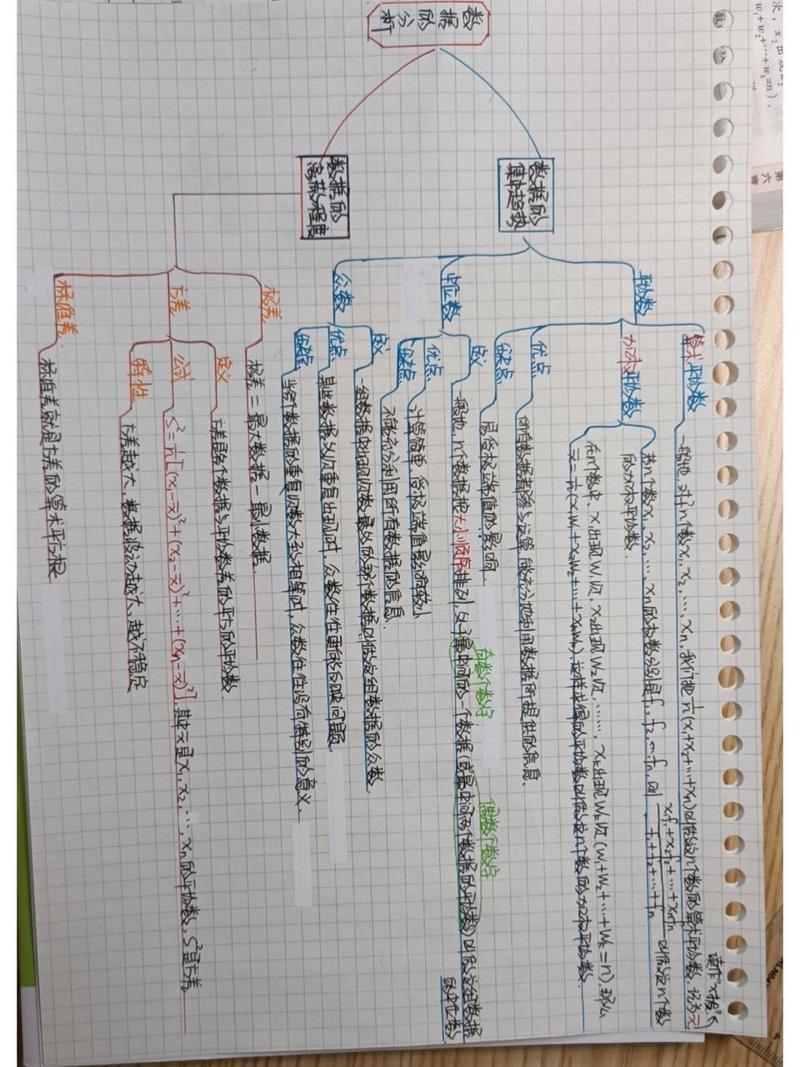 数据的分析
数据的集中趋势
平均数
算术平均数
一般地，对于n个数x₁,x₂,…,xₙ,我们把1/n(x₁+x₂+…+xₙ)叫做这n个数的算术平均数,记为x̄
读作"x拔"
加权平均数
若n个数x₁,x₂,…,xₙ的权数分别是f₁,f₂,…fₙ,则(x₁f₁+x₂f₂+…+xₙfₙ)/(f₁+f₂+…+fₙ)叫做这n个数
的加权平均数.
在n个数中,x₁出现W₁次,x₂出现W₂次,……,xₖ出现Wₖ次(W₁+W₂+…+Wₖ=n),那么
x̄=1/n(x₁W₁+x₂W₂+…+xₖWₖ),这样求得的平均数叫做这n个数的加权平均数.
优点
所有数据都参与运算,能充分地利用数据所提供的信息.
缺点
易受极端值的影响
中位数
定义
一般地,n个数据按大小顺序排列,处于最中间的一个数据(或最中间两个数据的平均数)叫做这组数据
的中位数
奇数个数字
偶数个数字
优点
计算简单,受极端值影响较小
缺点
不能充分利用所有数据的信息.
众数
定义
一组数据中出现次数最多的那个数据叫做这组数据的众数.
优点
某些数据多次重复出现时,众数往往更能反映问题
缺点
当各个数据的重复次数大致相等时,众数往往没有特别的意义.
数据的离散程度
极差
极差=最大数据-最小数据.
方差
定义
方差是各个数据与平均数差的平方的平均数
公式
S²=1/n[(x₁-x̄)²+(x₂-x̄)²+…+(xₙ-x̄)²],其中x̄是x₁,x₂,…,xₙ的平均数,S²是方差
特性
方差越大,数据波动越大,越不稳定
标准差
标准差就是方差的算术平方根
第六章
w₁+w₂+…+wₖ=n),